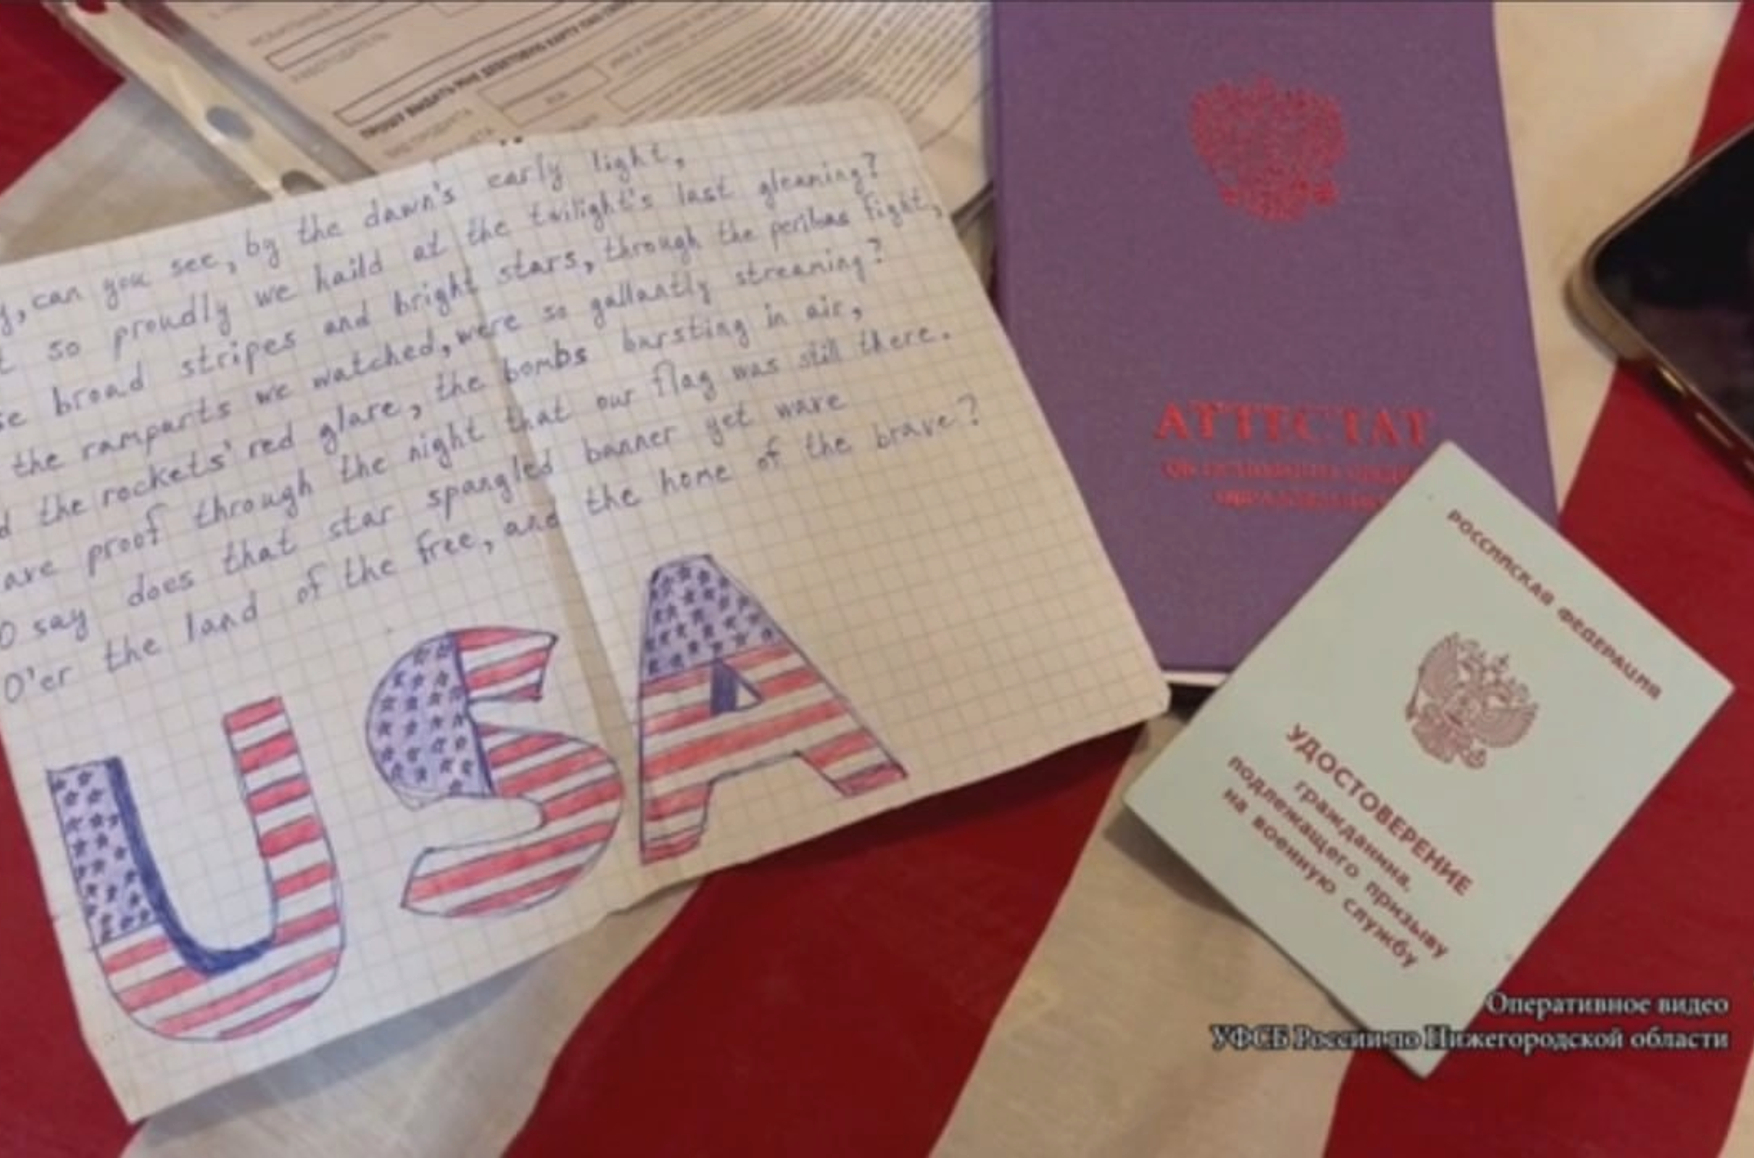 РАБОТОДАТЕЛЬ
ПРОШУ ВЫДАТЬ МНЕ ДЕБЕТОВУЮ КАРТУ
can you see, by the dawn's early light,
so proudly we haild at the twilight's last gleaming?
broad stripes and bright stars, through the perilous fight,
the ramparts we watched, were so gallantly streaming?
the rockets' red glare, the bombs bursting in air,
ave proof through the night that our flag was still there.
O say does that star spangled banner yet wave
O'er the land of the free, and the home of the brave?
USA
АТТЕСТАТ
ОБ ОСНОВНОМ ОБЩЕМ
ОБРАЗОВАНИИ
РОССИЙСКАЯ ФЕДЕРАЦИЯ
УДОСТОВЕРЕНИЕ
гражданина,
подлежащего призыву
на военную службу
Оперативное видео
УФСБ России по Нижегородской области